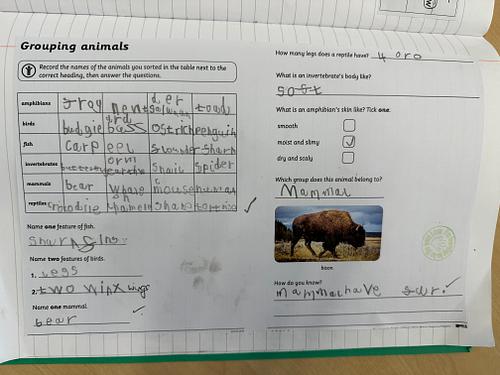 Grouping animals
Record the names of the animals you sorted in the table next to the
correct heading, then answer the questions.
amphibians frog newt toad
birds budgie ostrich penguin
fish carp eel flounder shark
invertebrates snail spider
mammals bear whale mouse human
reptiles crocodile
Name one feature of fish.
Name two features of birds.
1. legs
2. two winx wings
Name one mammal.
bear
How many legs does a reptile have? 4 or 0
What is an invertebrate's body like?
soft
What is an amphibian's skin like? Tick one.
smooth
moist and slimy
dry and scaly
Which group does this animal belong to?
Mammal
bison
How do you know?
mammal have